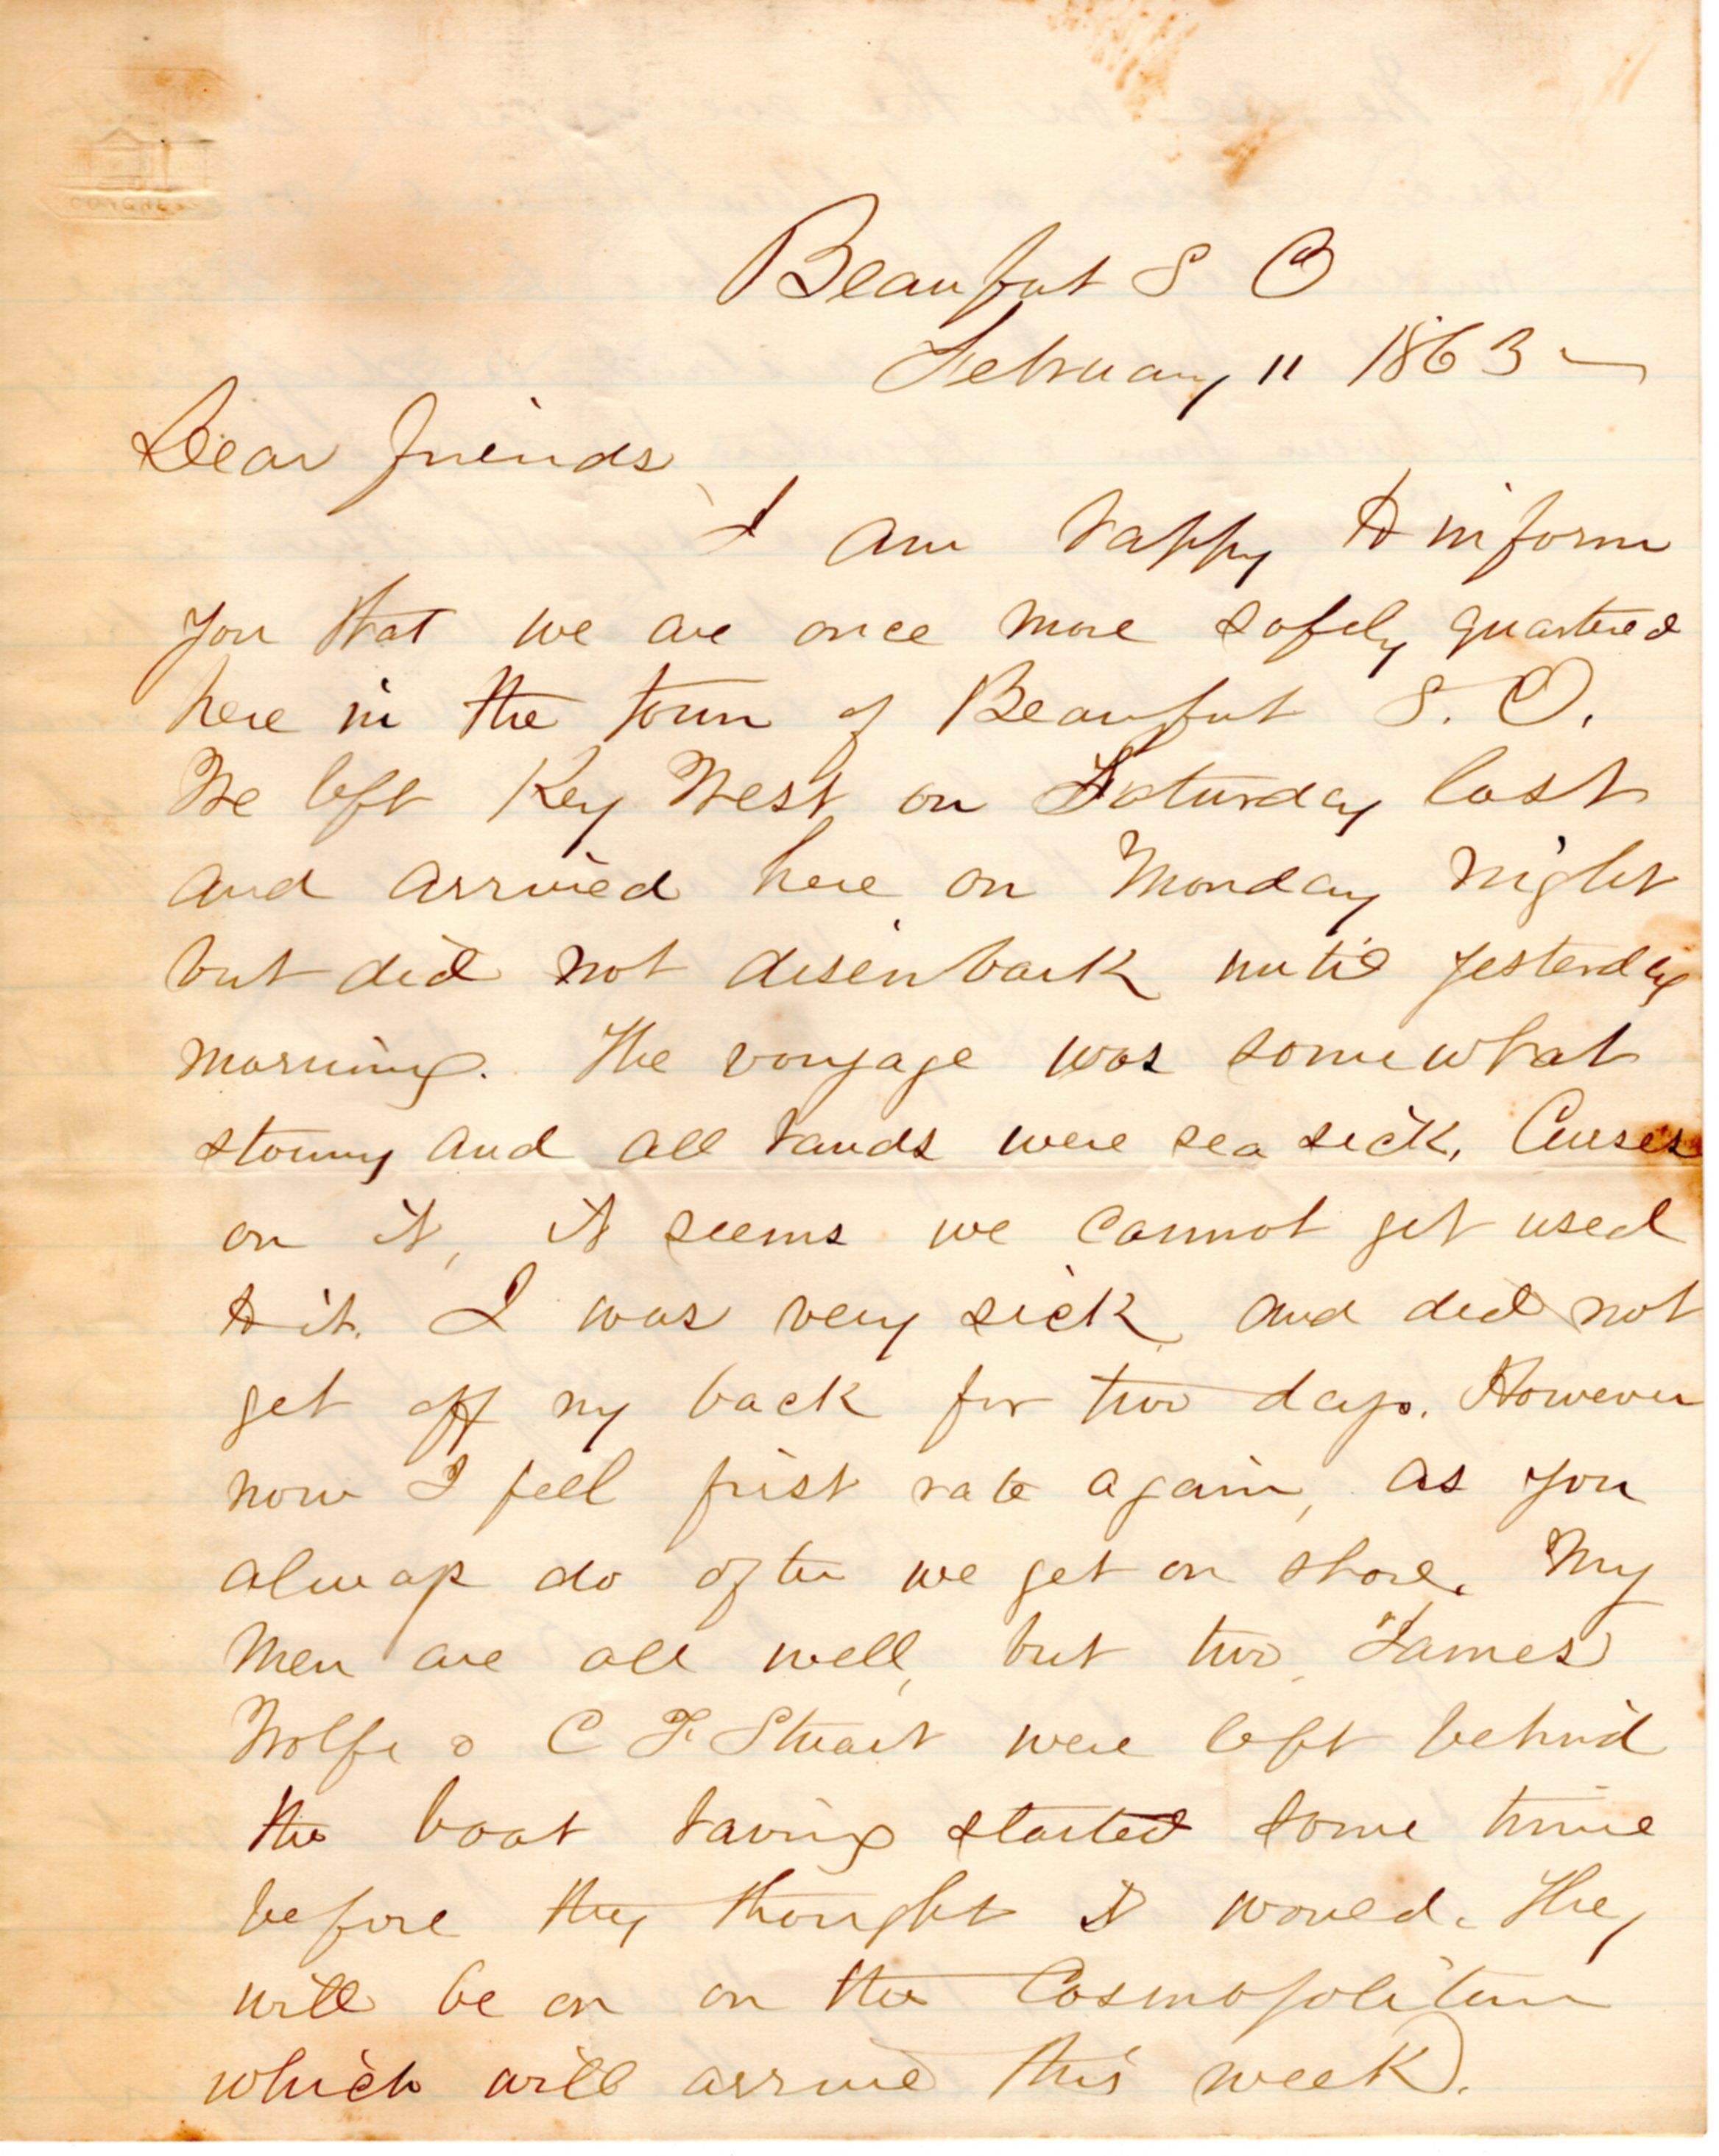 CONGRESS
Beaufort S C
February 11 1863
Dear friends
I am happy to inform
you that we are once more safely quartered
here in the town of Beaufort S. C.
We left Key West on Saturday last
and arrived here on Monday night
but did not disembark until yesterday
morning. The voyage was somewhat
stormy and all hands were sea sick, Curses
on it, it seems we cannot get used
to it. I was very sick and did not
get off my back for two days. However
now I feel first rate again, as you
always do after we get on shore. My
men are all well, but two, James
Wolfe & C F Stuart were left behind
the boat having started some time
before they thought it would. They
will be on on the Cosmopolitan
which will arrive this week.